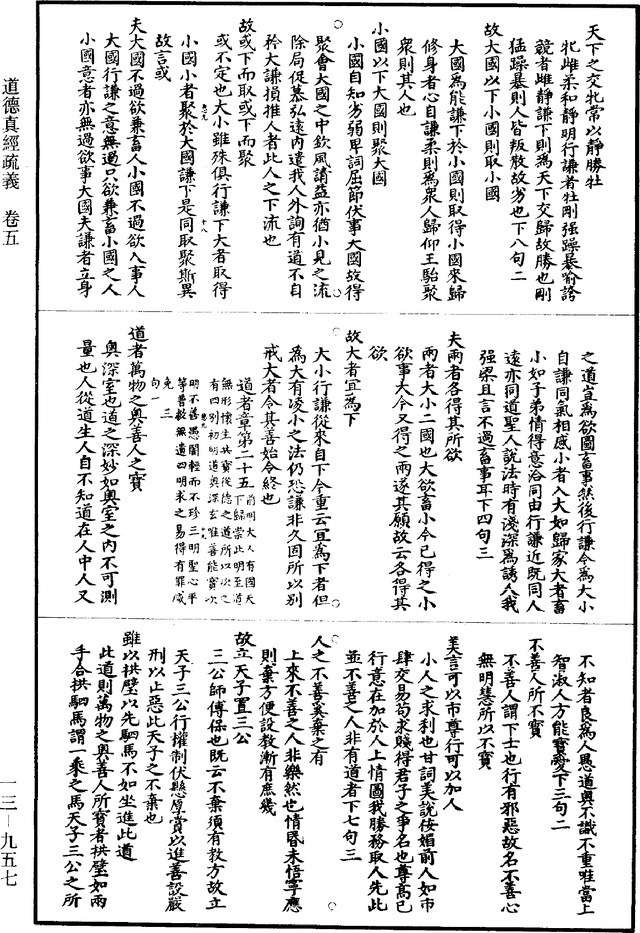 天下之交牝常以靜勝牡
牝雌柔和靜明行謙者牡剛强躁暴喻誇
競者雌靜謙下則為天下交歸故勝也剛
猛躁暴則人皆叛散故劣也下八句二
故大國以下小國則取小國
大國為能謙下於小國則取得小國來歸
修身者心自謙柔則為衆人歸仰王駘聚
衆則其人也
小國以下大國則聚大國
小國自知劣弱卑詞屈節伏事大國故得
聚會大國之中欽風請益亦猶小見之流
除局促慕弘遠内遣我人外詞有道不自
矜大謙損推人者此人之下流也
故或下而取或下而聚
或不定也大小雖殊俱行謙下大者取得
小國小者聚於大國謙下是同取聚斯異
故言或
夫大國不過欲兼畜人小國不過欲入事人
大國行謙之意無過只欲兼畜小國之人
小國意者亦無過欲事大國夫謙者立身
之道豈為欲圖畜事然後行謙今為大小
自謙同氣相感小者入大如歸家大者畜
小如子弟情得意洽同由行謙近既同人
遠亦同道聖人說法時有淺深為誘人我
强梁且言不過畜事耳下四句三
夫兩者各得其所欲
兩者大小二國也大欲畜小今已得之小
欲事大今又得之兩遂其願故云各得其
欲
故大者宜為下
大小行謙從來自下今重云宜為下者但
為大有凌小之法仍恐謙非久固所以别
戒大者令其善始令終也
道者章第二十五
前明大人有國天
下歸崇此明至道
無形懷生共寶後德之道所以次之
有四别初明道奧深玄唯善能寶次
明不善愚闇輕而不珍三明聖心平
等普救無遺四明求之易得有罪咸
免一三
句一
道者萬物之奧善人之寶
奧深室也道之深妙如奧室之内不可測
量也人從道生人自不知道在人中人又
不知者良為人愚道奧不識不重唯當上
智淑人方能寶愛下三句二
不善人所不寶
不善人謂下士也行有邪惡故名不善心
無明慧所以不寶
美言可以市尊行可以加人
小人之求利也甘詞美說佞媚前人如市
肆交易苟求賤得君子之爭名也尊高已
行意在加於人上情圖我勝務取人先此
並不善之人非有道者下七句三
人之不善奚棄之有
上來不善之人非樂然也情昏未悟寧應
則棄方便設教漸有庶幾
故立天子置三公
三公師傅保也既云不棄須有教方故立
天子三公行權制伏懸厚賞以進善設嚴
刑以止惡此天子之不棄也
雖以拱璧以先駟馬不如坐進此道
此道則萬物之奧善人所寶者拱璧如兩
手合拱駟馬謂一乘之馬天子三公之所
道德真經疏義　卷五
一三－九五七